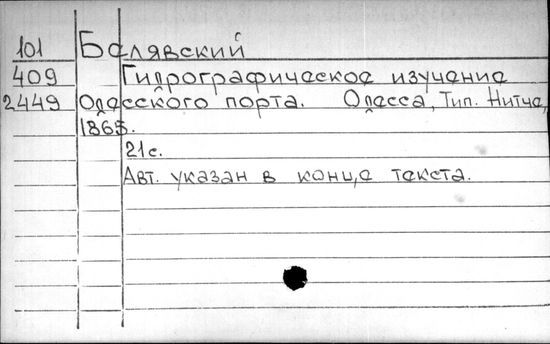 101 Белявский
409 Гидрографическое изучение
2449 Одесского порта. Одесса, Тип. Нитче,
1865.
21с.
Авт. указан в конце текста.